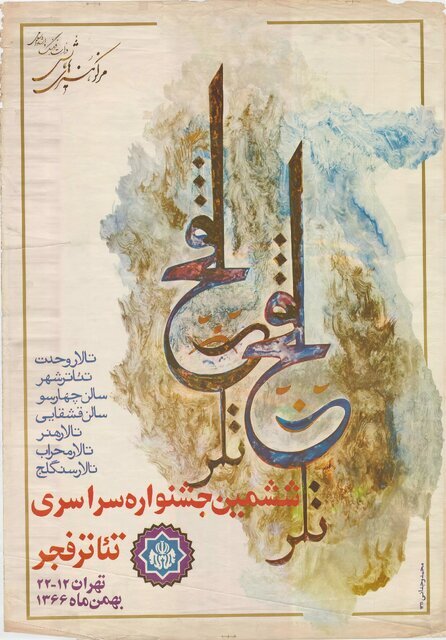 وزارت فرهنگ و ارشاد اسلامی
مرکز هنرهای نمایشی
تالار وحدت
تئاتر شهر
سالن چهارسو
سالن قشقایی
تالار هنر
تالار محراب
تالار سنگلج
ششمین جشنواره سراسری
تئاتر فجر
تهران ۱۲-۲۲
بهمن ماه ۱۳۶۶
محمد وجدانی